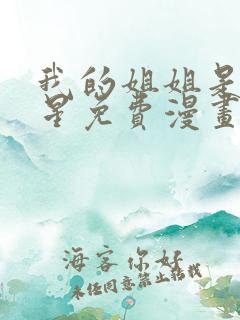 我的姐姐是
星免費漫畫
海客你好
未经同意禁止转载